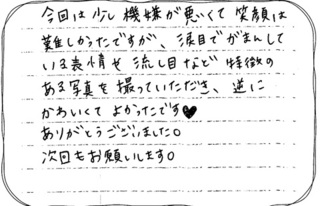 今回は少し機嫌が悪くて笑顔は
難しかったですが、涙目でがまんして
いる表情や流し目など特徴の
ある写真を撮っていただき、逆に
かわいくてよかったです♥
ありがとうございました。
次回もお願いします。